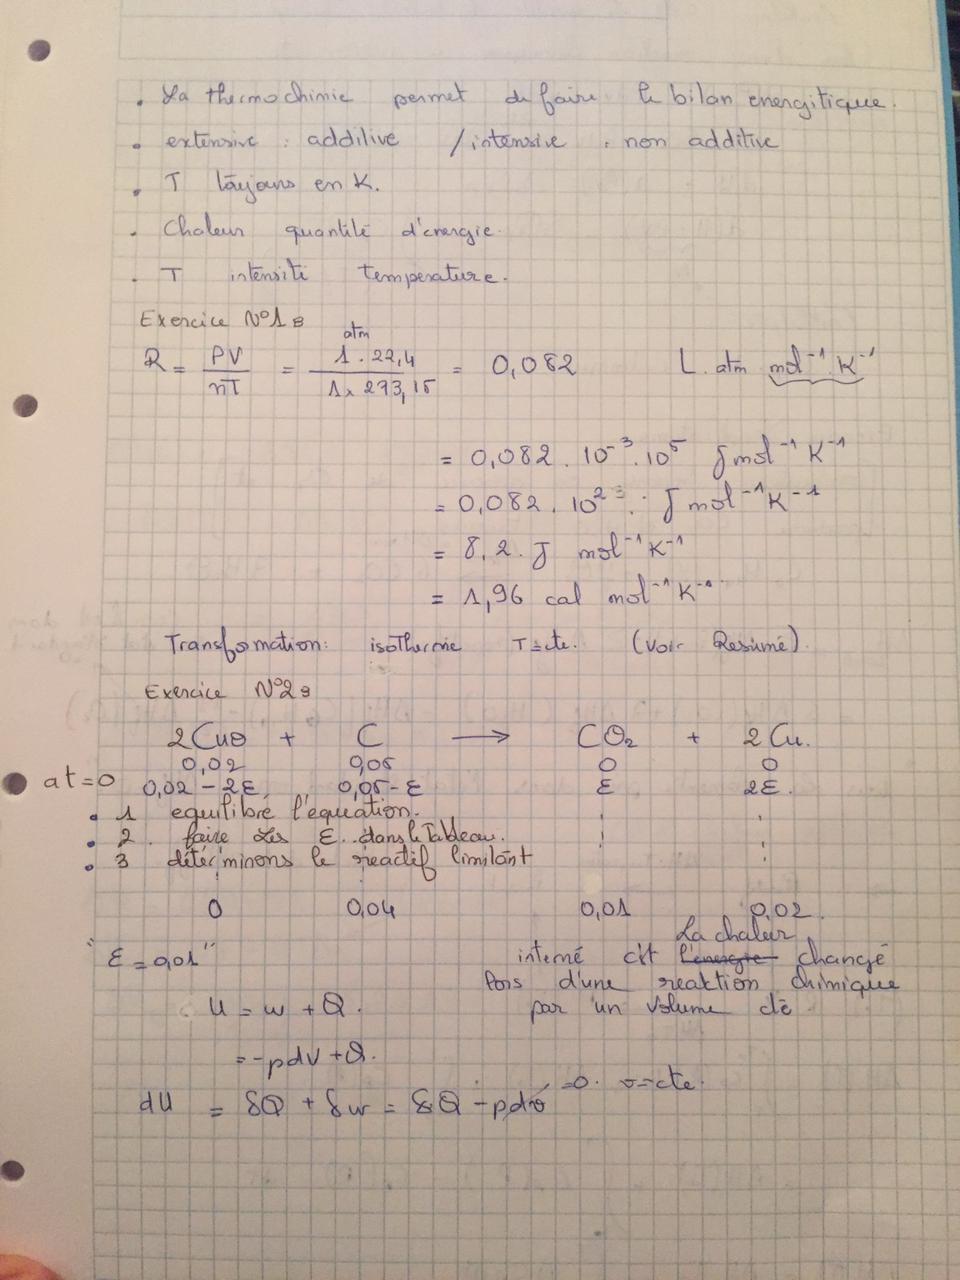 . La thermochimie permet de faire le bilan energitique.
. extensive : additive / intensive : non additive
. T toujours en K.
. Chaleur quantité d'énergie.
. T intensité température.
Exercice N°1 :
R = PV / nT = 1 atm . 22,4 / 1 x 273,15 = 0,082 L . atm mol⁻¹ . K⁻¹
= 0,082 . 10⁻³ . 10⁵ J mol⁻¹ K⁻¹
= 0,082 . 10² . J mol⁻¹ K⁻¹
= 8,2 . J mol⁻¹ K⁻¹
= 1,96 cal mol⁻¹ K⁻¹
Transformation : isotherme T = cte. (Voir Resumé).
Exercice N°2 :
2 CuO + C ⟶ CO₂ + 2 Cu.
0,02 0,05 0 0
at = 0 0,02 - 2ε 0,05 - ε ε 2ε.
. 1 equilibré l'equation.
. 2 . faire les ε. dans le Tableau.
. 3 détérminons le reactif limitant
0 0,04 0,01 0,02.
"ε = 0,01"
La chaleur
interne c'st l'énergie changé
lors d'une reaktion chimique
par un volume cte
U = w + Q.
= -pdV + Q.
dU = δQ + δw = δQ - pdv = 0. v = cte.